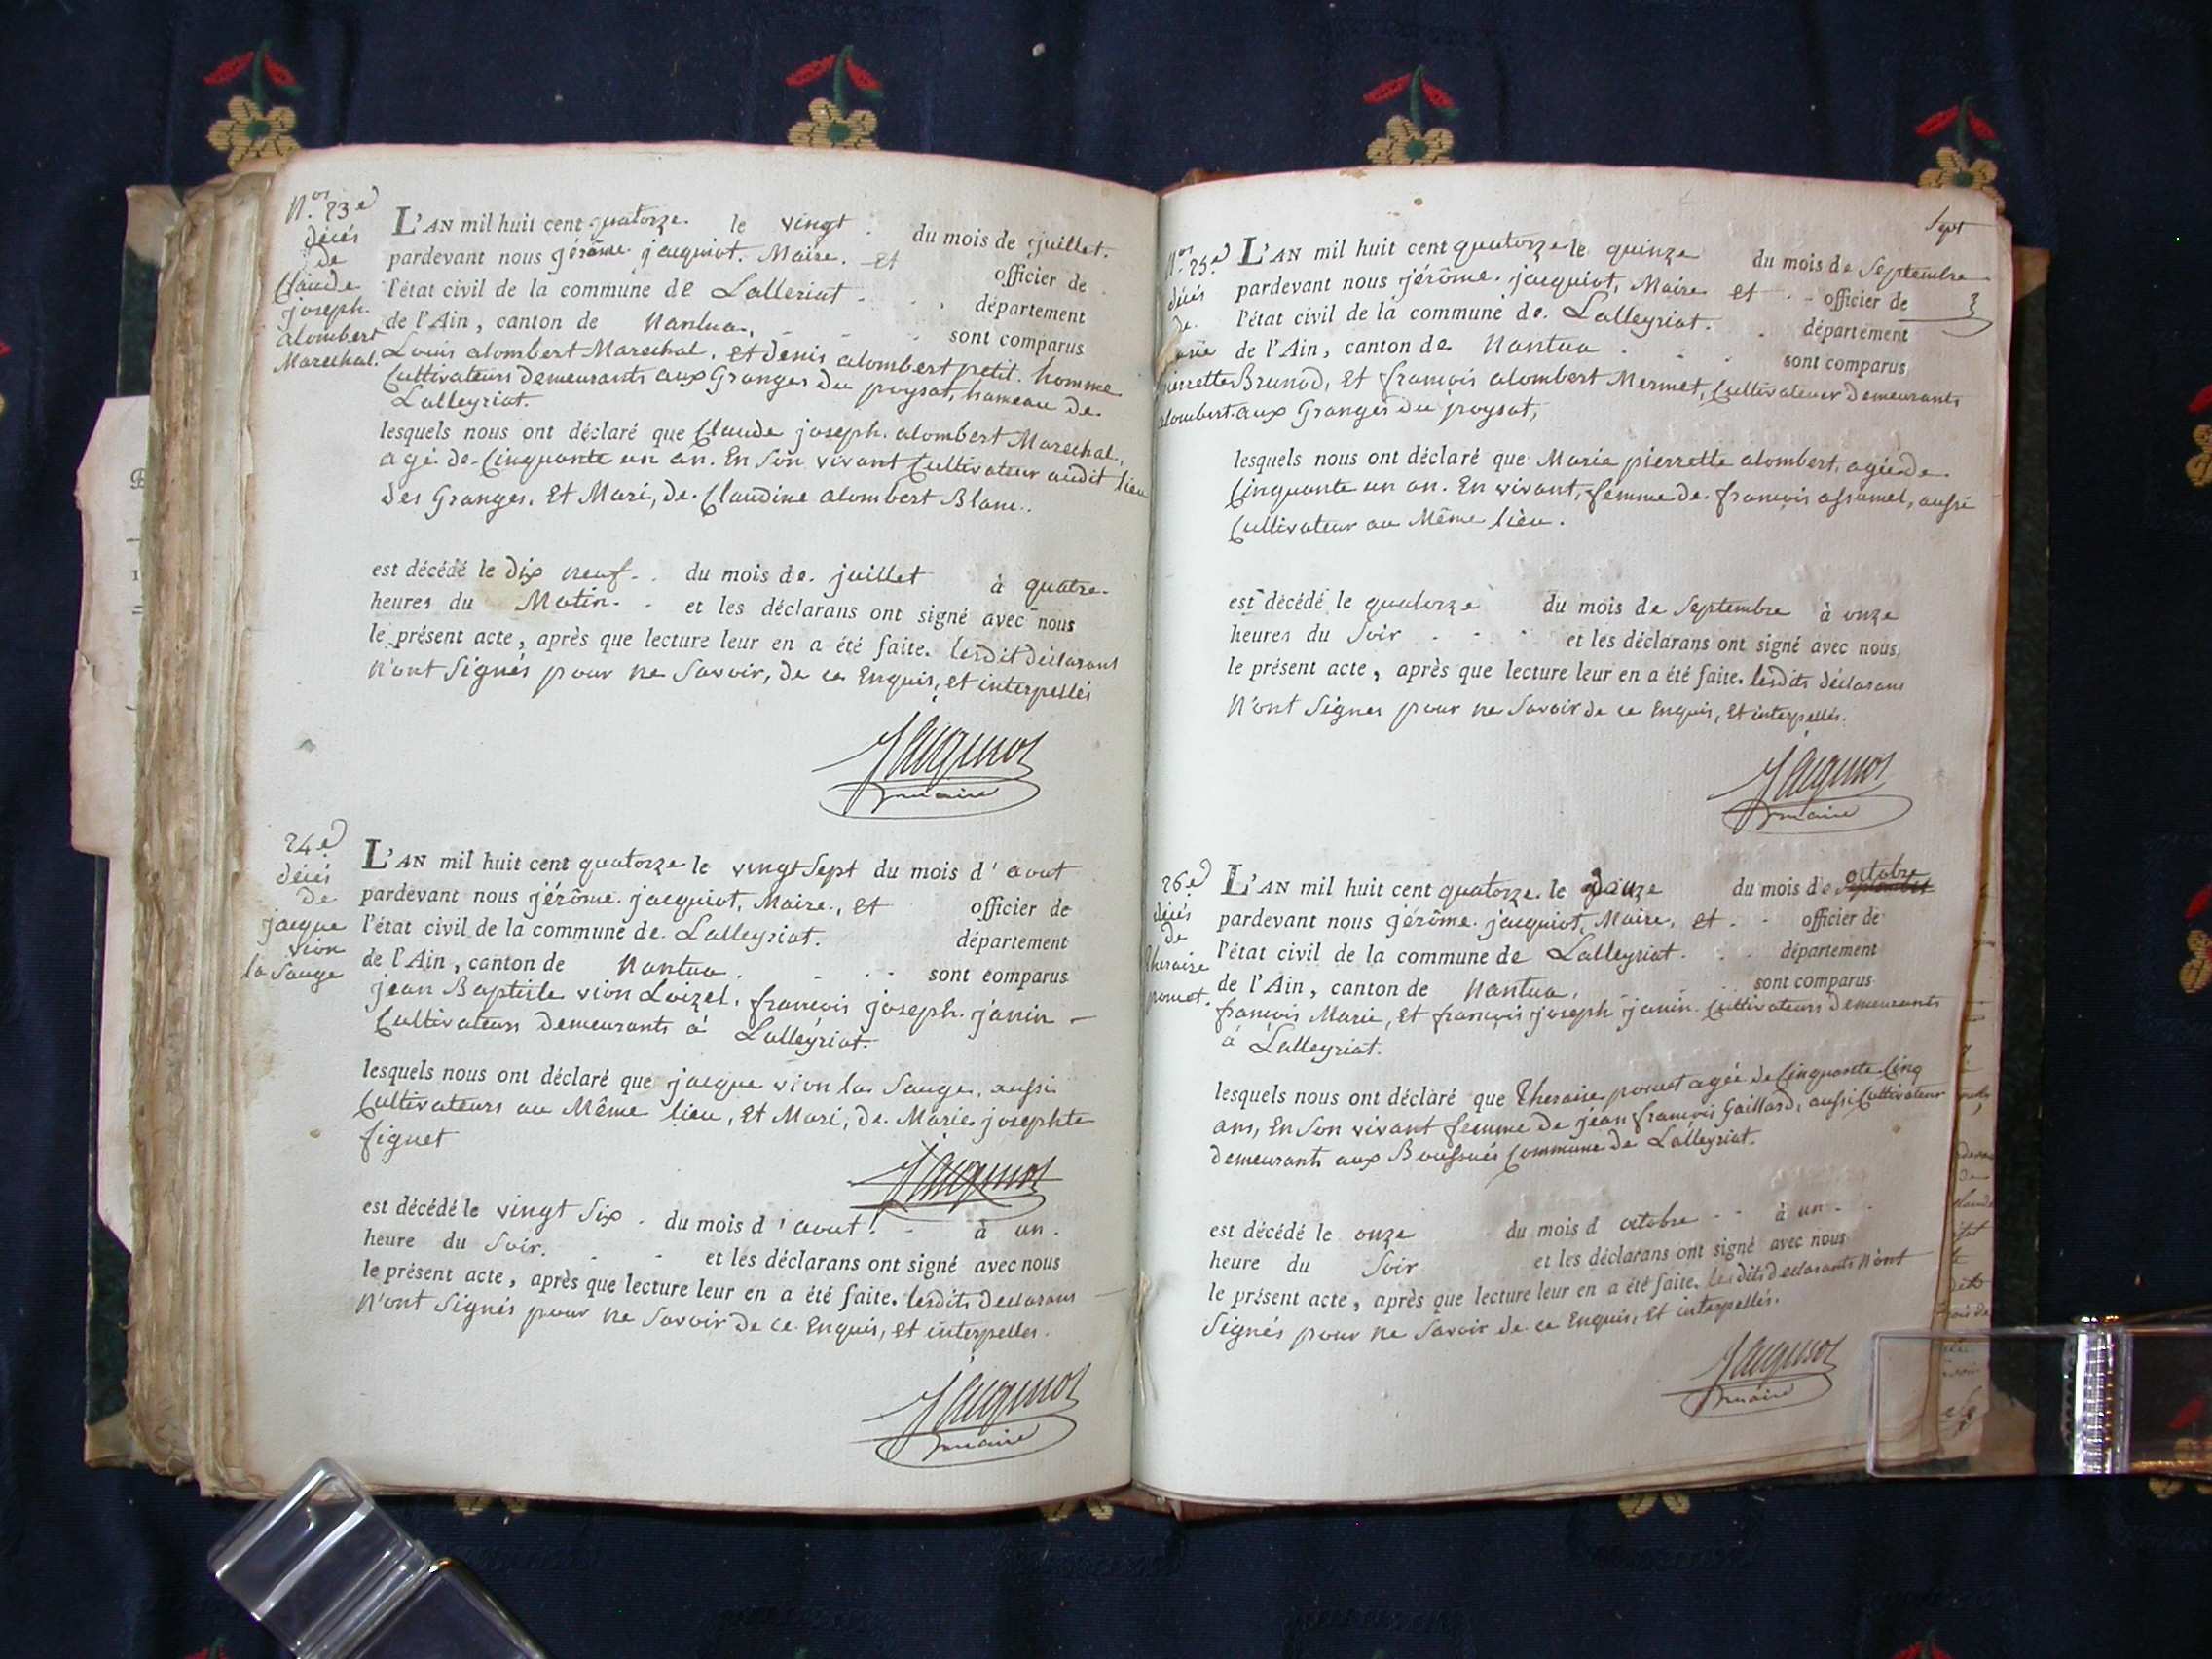 N.os 23e
décés
de
Claude
joseph.
alombert
Marechal.
L'AN mil huit cent quatorze. le vingt du mois de juillet.
pardevant nous jérôme jacquiot. Maire. Et officier de
l'état civil de la commune de Lalleriat. département
de l'Ain, canton de Nantua. sont comparus
Louis alombert Marechal, Et denis alombert petit. homme
Cultivateurs demeurants aux Granges du poysat, hameau de
Lalleyriat.
lesquels nous ont déclaré que Claude joseph. alombert Marechal,
agé de Cinquante un an. En Son vivant Cultivateur audit lieu
des Granges. Et Mari, de. Claudine alombert Blanc..
est décédé le dix neuf. du mois de. juillet à quatre
heures du Matin. et les déclarans ont signé avec nous
le présent acte, après que lecture leur en a été faite. lesdit déclarans
N'ont Signés pour ne Savoir, de ce Enquis, Et interpellés
Jacquiot
maire
24e
décés
de
jacque
vion
la Sauge
L'AN mil huit cent quatorze le vingt Sept du mois d'aout
pardevant nous jérôme. jacquiot, Maire., Et officier de
l'état civil de la commune de. Lalleyriat. département
de l'Ain, canton de Nantua. sont comparus
jean Baptiste vion Loizel. françois joseph. janin
Cultivateurs demeurants à Lalleyriat.
lesquels nous ont déclaré que jacque vion la Sauge, aussi
Cultivateurs au Même lieu, Et Mari, de. Marie josephte
figuet
Jacquiot
est décédé le vingt Six. du mois d'aout. à un.
heure du Soir. et les déclarans ont signé avec nous
le présent acte, après que lecture leur en a été faite. lesdits declarans
N'ont Signés pour ne Savoir de ce Enquis, Et interpelles.
Jacquiot
maire
N.os 25e
décés
de.
pierrette
alombert
L'AN mil huit cent quatorze le quinze du mois de Septembre
pardevant nous jérôme. jacquiot, Maire Et officier de
l'état civil de la commune de. Lalleyriat. département
de l'Ain, canton de Nantua sont comparus
Brunod, Et françois alombert Mermet, Cultivateur demeurants
aux Granges du poysat,
lesquels nous ont déclaré que Marie pierrette alombert, agée de
Cinquante un an. En vivant, femme de. françois assumel, aussi
Cultivateur au Même lieu.
est décédé le quatorze du mois de Septembre à onze
heures du Soir et les déclarans ont signé avec nous,
le présent acte, après que lecture leur en a été faite. lesdits déclarans
N'ont Signes pour ne Savoir de ce Enquis, Et interpellés.
Jacquiot
maire
26e
décés
de
theraise
ponet.
L'AN mil huit cent quatorze. le douze du mois de octobre septembre
pardevant nous jérôme. jacquiot, Maire, Et officier de
l'état civil de la commune de Lalleyriat. département
de l'Ain, canton de Nantua. sont comparus
françois Marie, Et françois joseph janin. Cultivateurs demeurants
à Lalleyriat.
lesquels nous ont déclaré que theraise ponet agée de Cinquante Cinq
ans, En Son vivant femme de jean françois Gaillard, aussi Cultivateur
demeurants aux Commune de Lalleyriat.
est décédé le onze du mois d octobre à un
heure du Soir et les déclarans ont signé avec nous
le présent acte, après que lecture leur en a été faite. lesdits declarants N'ont
Signés pour ne Savoir de. ce Enquis, Et interpellés.
Jacquiot
maire